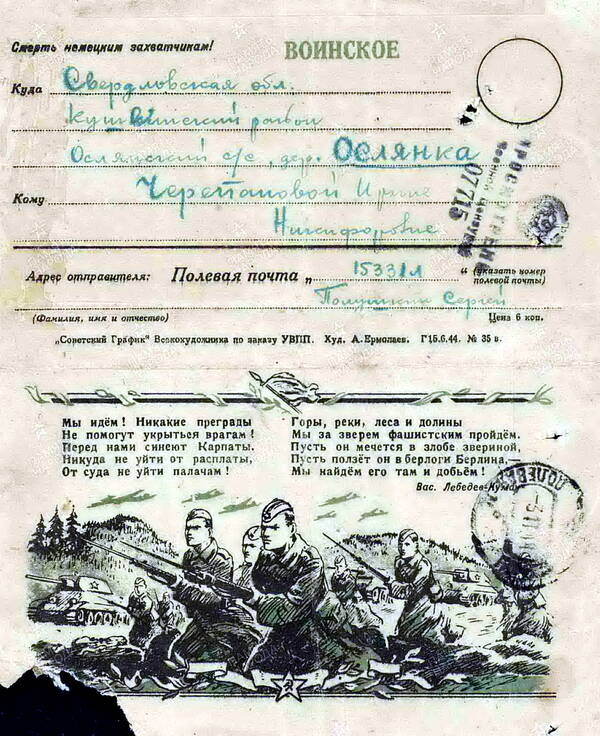 Смерть немецким захватчикам!
ВОИНСКОЕ
Куда Свердловская обл.
Кушвинский район
Ослянский с/с, дер. Ослянка
Кому Черепановой Ирине
Никифоровне
ПРОСМОТРЕНО
Военной Цензурой
07715
Адрес отправителя: Полевая почта „ 15331л “ (указать номер
полевой почты)
Полушкин Сергей
(Фамилия, имя и отчество) Цена 6 коп.
„Советский График“ Всекохудожника по заказу УВПП. Худ. А. Ермолаев. Г15.6.44. № 35 в.
Мы идём! Никакие преграды
Не помогут укрыться врагам!
Перед нами синеют Карпаты.
Никуда не уйти от расплаты,
От суда не уйти палачам!
Горы, реки, леса и долины
Мы за зверем фашистским пройдём.
Пусть он мечется в злобе звериной,
Пусть ползёт он в берлоги Берлина,—
Мы найдём его там и добьём!
Вас. Лебедев-Кумач